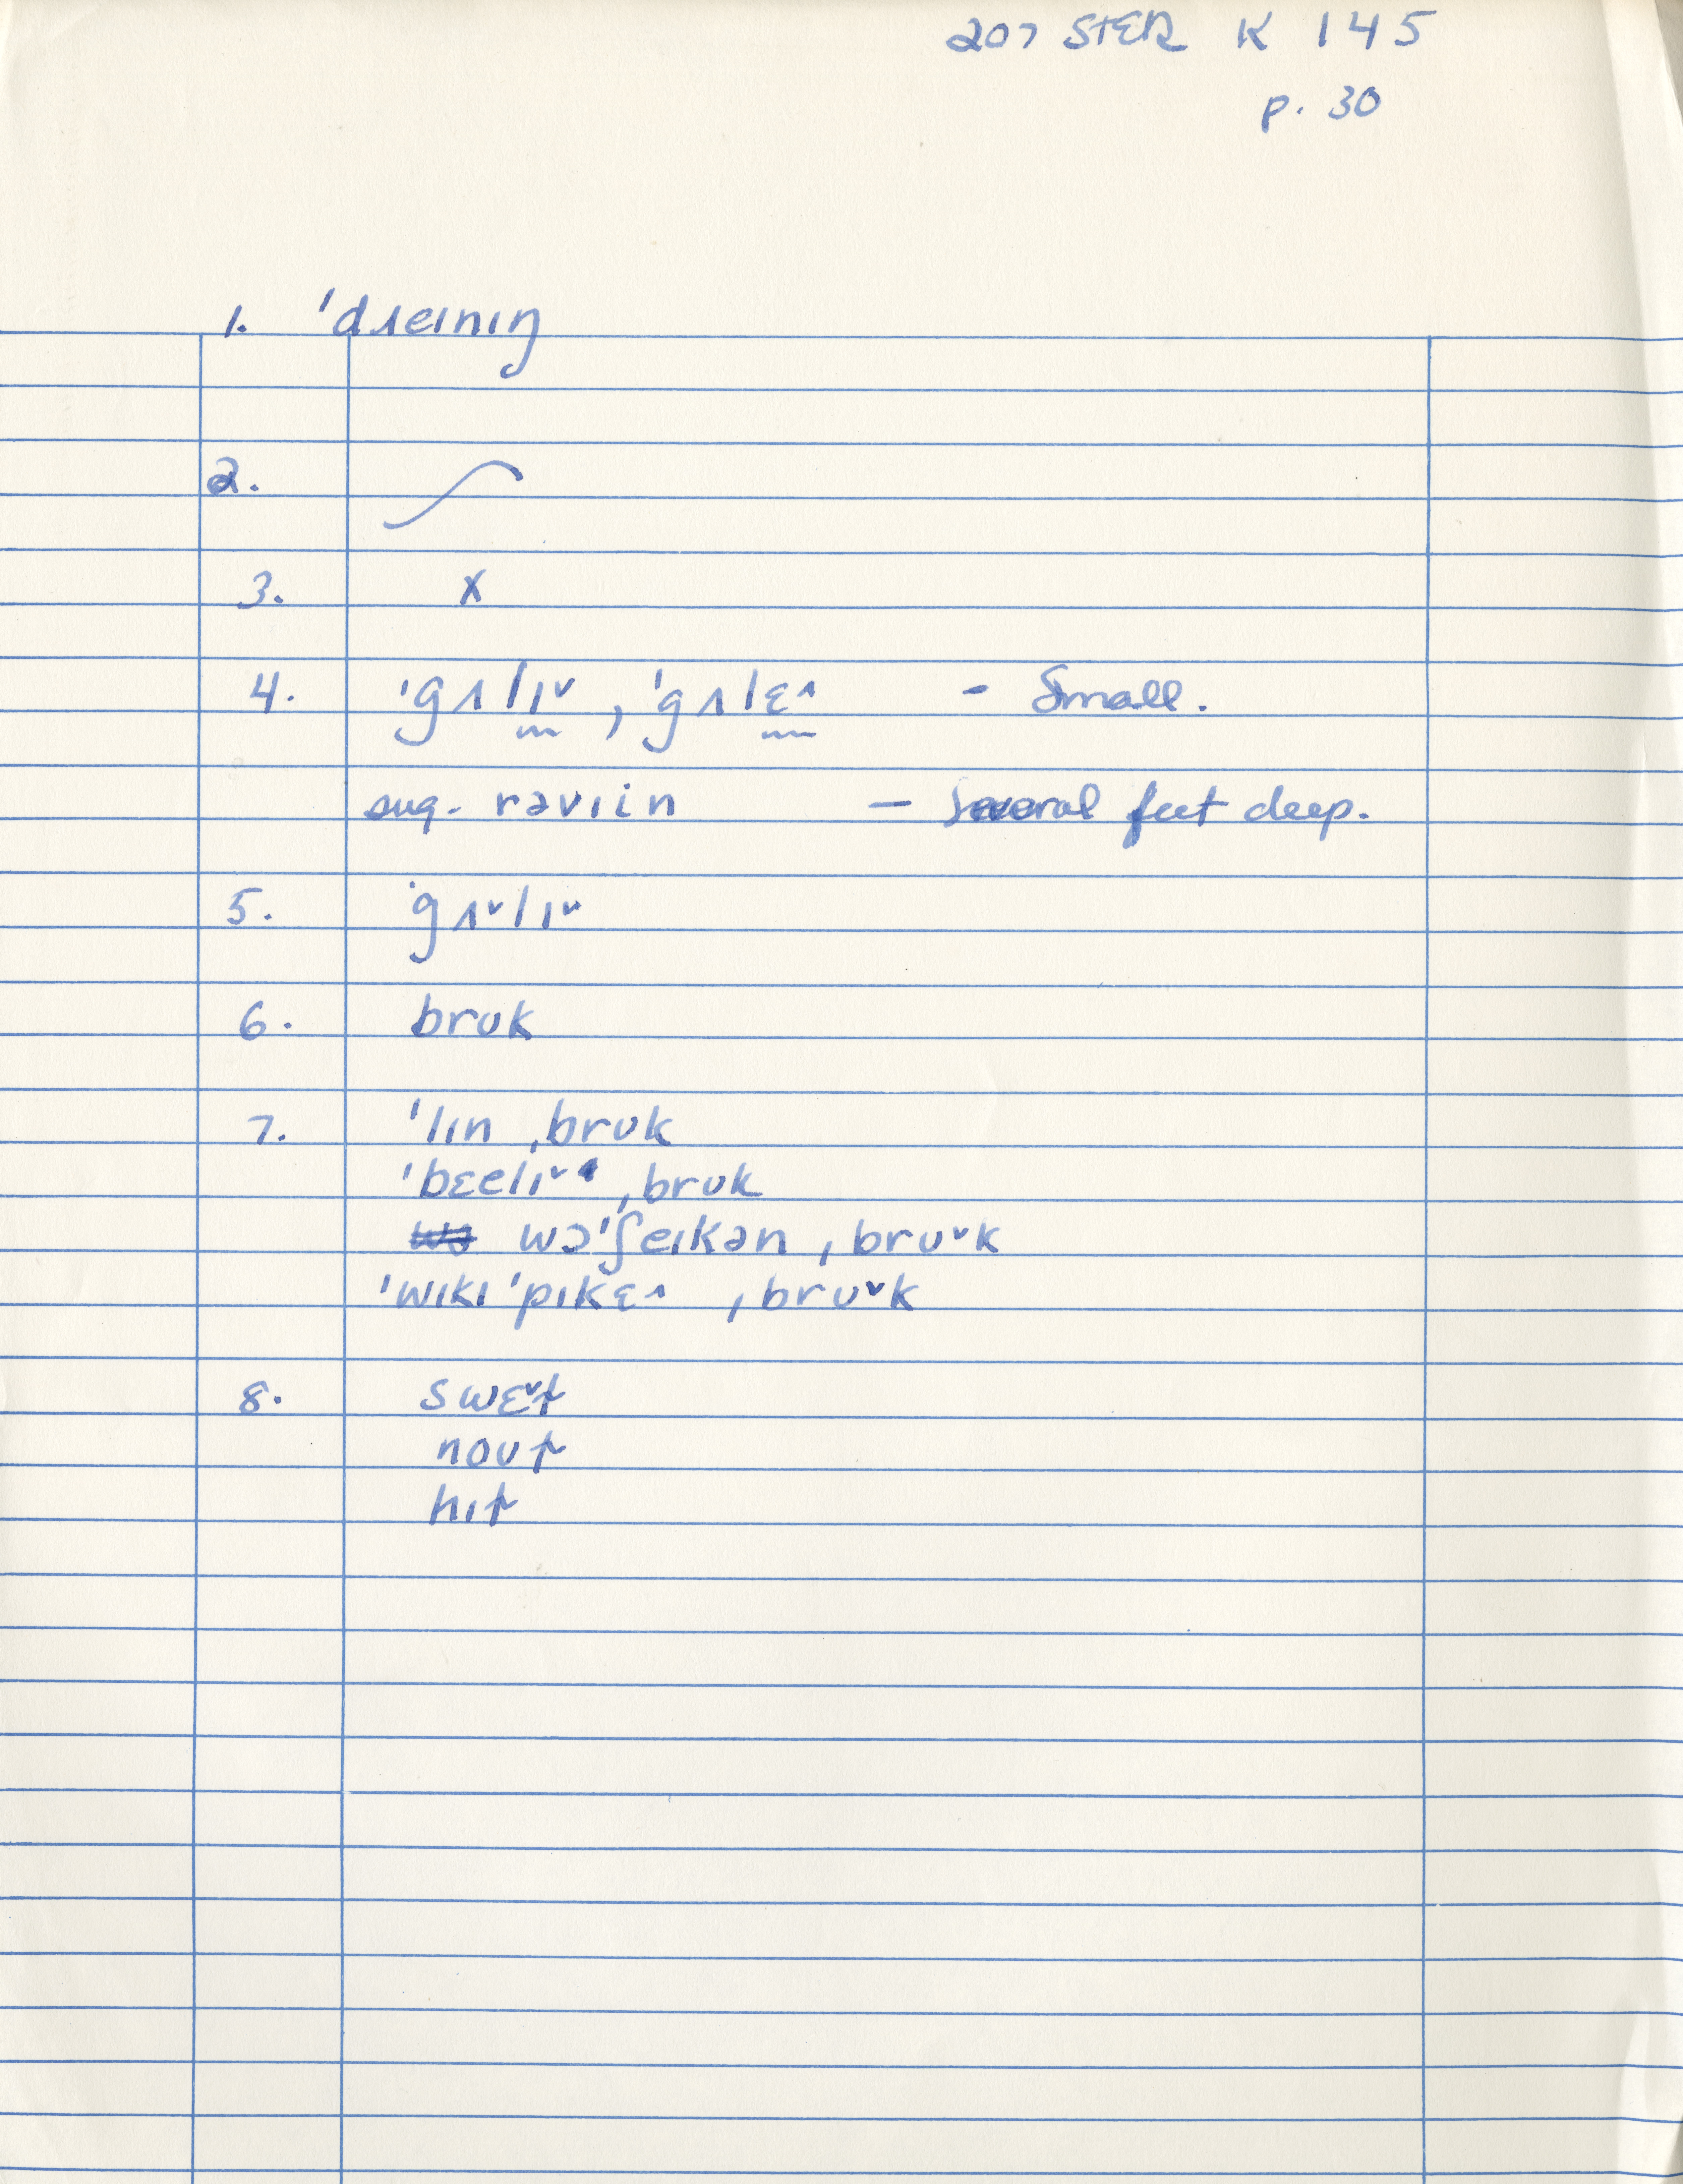 207 STER K 145
p. 30
1. ˈdɹeɪnɪŋ
2. ⁓
3. x
4. ˈgʌlɪ˅, ˈgʌlɛ˄ - Small.
sug. rəvɪin — several feet deep.
5. ˈgʌ˅lɪ˅
6. brʊk
7. ˈlɪn ˌbrʊk
ˈbɛelɪ˅ ˌbrʊk
wɔˈʃeɪkən ˌbrʊ˅k
ˈwɪkɪˈpɪkɛ˄ ˌbrʊ˅k
8. swɛ˅t
noʊt
hɪt